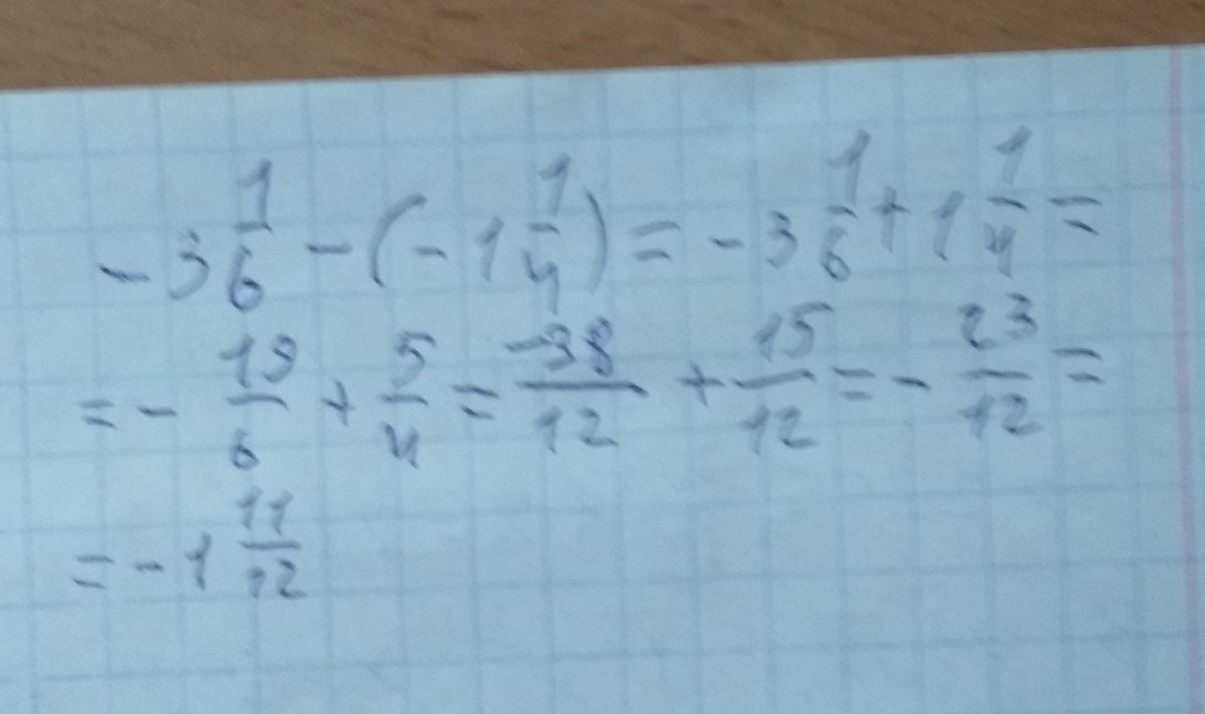 -3 1/6 - (-1 1/4) = -3 1/6 + 1 1/4 =
= - 19/6 + 5/4 = -38/12 + 15/12 = - 23/12 =
= -1 11/12